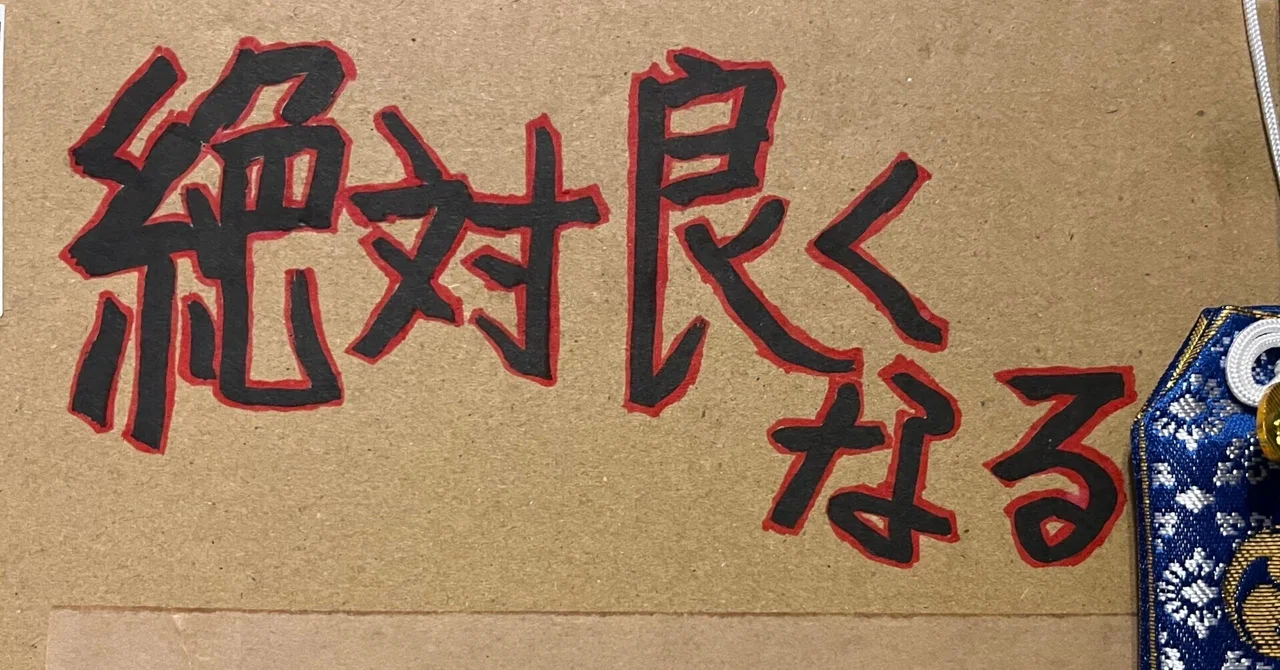 絶対良く
なる